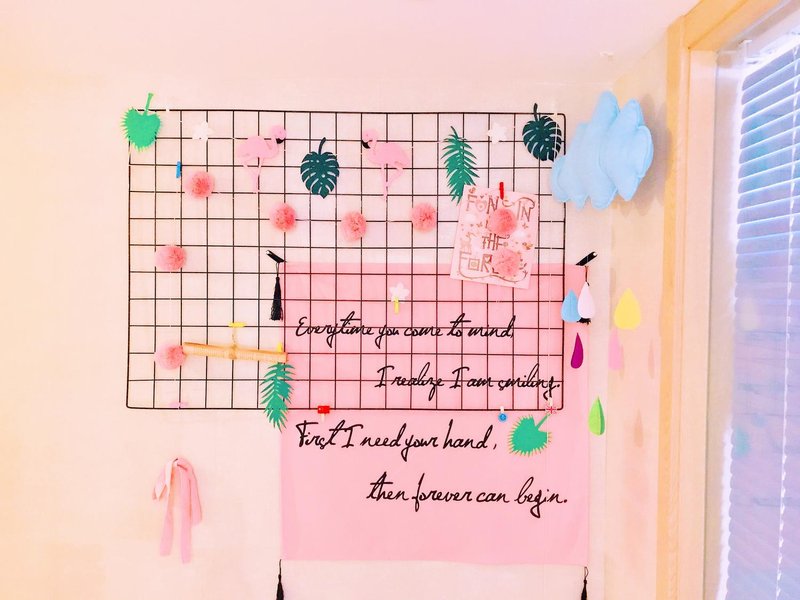 FUN IN
THE
Everytime you come to mind,
I realize I am smiling.
First I need your hand,
then forever can begin.